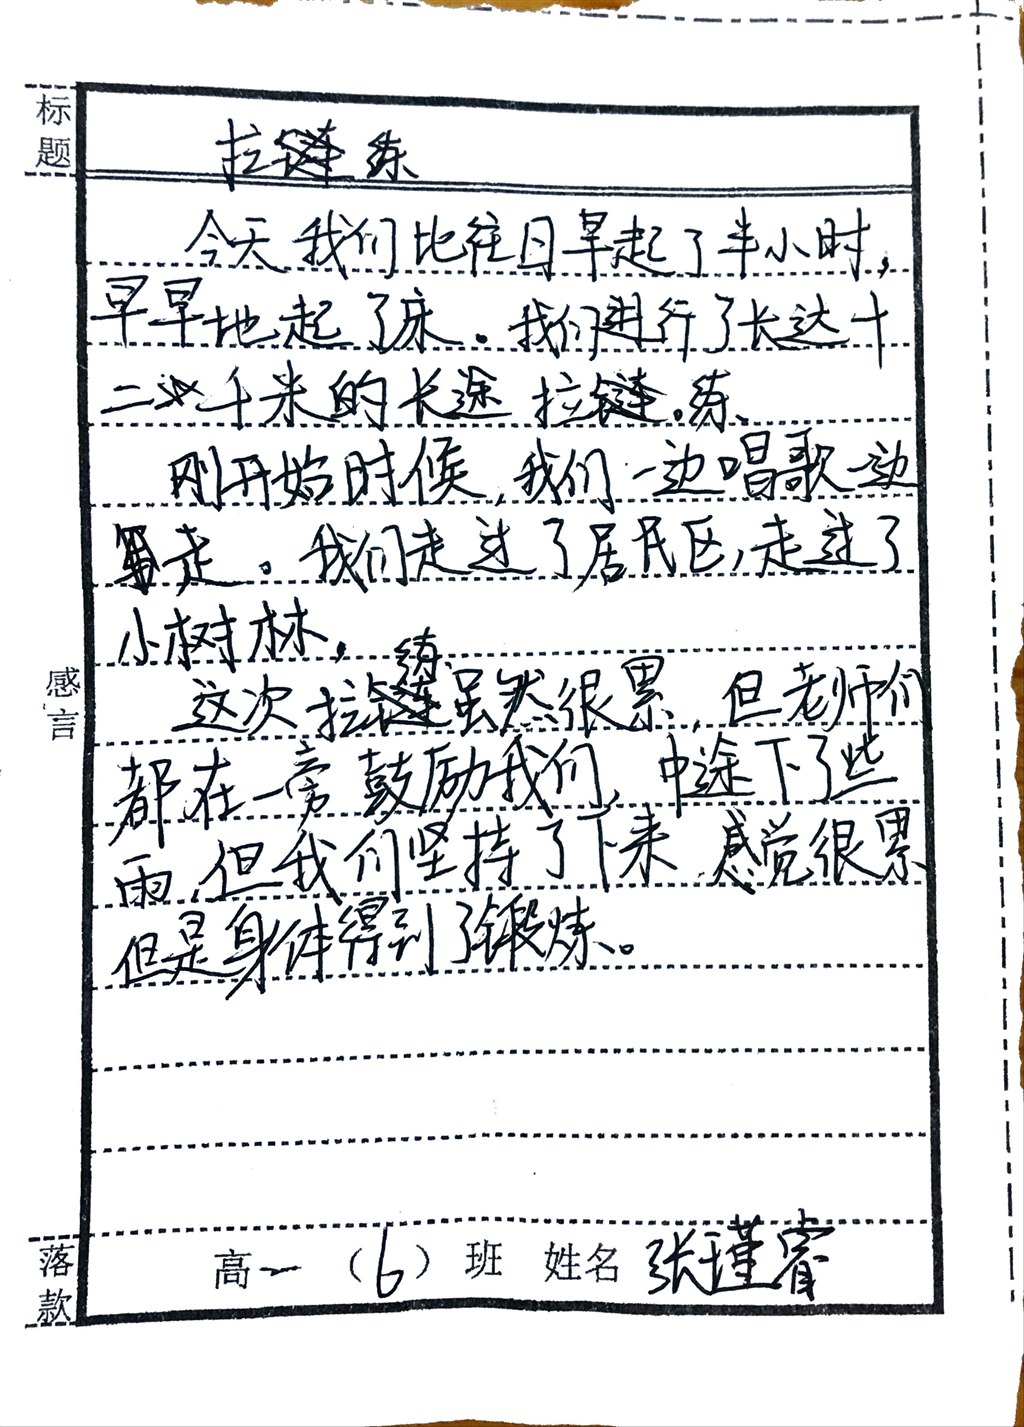 标题
拉练
今天我们比往日早起了半小时,
早早地起了床。我们进行了长达十
二千米的长途拉练。
刚开始时候,我们一边唱歌一边
走。我们走过了居民区,走过了
小树林,
这次拉练虽然很累,但老师们
都在一旁鼓励我们,中途下了些
雨,但我们坚持了下来,感觉很累
但是身体得到了锻炼。
感言
落款
高一(6)班 姓名 张瑾睿